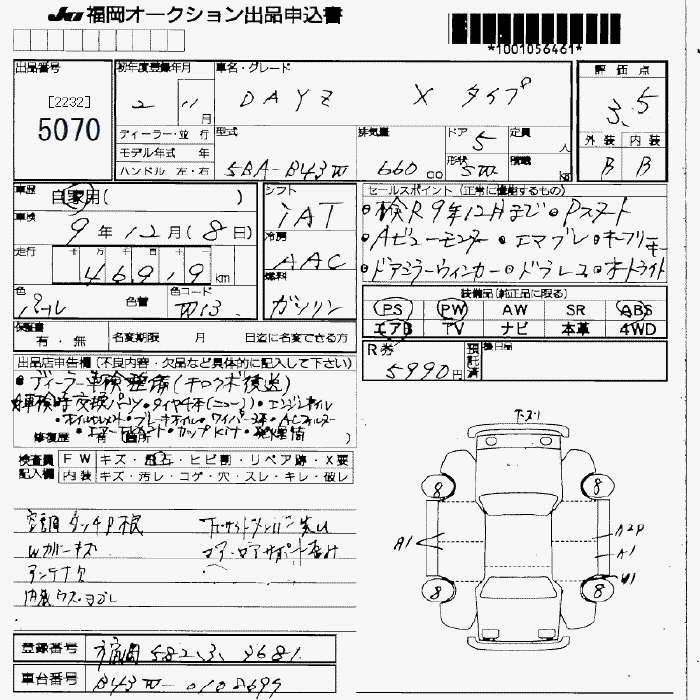 JU 福岡オークション出品申込書
*1001056461*
出品番号 [2232] 5070
初年度登録年月 2 11月
車名・グレード DAYZ X タイプ
評価点 3.5
外装 B 内装 B
ディーラー・並行
モデル年式 年
ハンドル 左・右
型式 5BA-B43W
排気量 660 cc
ドア 5 形状 SW
定員 人
積載 kg
車歴 自家用( )
車検 9年12月(8日)
走行 十万千百十 km
色 パール 色替 色コード
シフト iAT
冷房 AAC
燃料 ガソリン
セールスポイント(正常に機能するもの)
・検R9年12月まで・Pスタート
・Aビューモニター・エマブレ・キーフリーキー
・ドアミラーウィンカー・ドラレコ・オートライト
装備品(純正品に限る)
PS PW AW SR ABS
エアB TV ナビ 本革 4WD
保証書 有・無
名変期限 月 日迄に名変できる方
R券 5990円 預託済
後日品
出品店申告欄(不良内容・欠品など具体的に記入して下さい)
・ディーラー車検整備
車検時交換パーツ・タイヤ4本(ニュー)・エンジンオイル
・オイルエレメント・ブレーキオイル・ワイパーゴム・ACフィルター
・エアーエレメント・カップkit・発煙筒
修復歴 有(箇所 )
検査員記入欄
FW キズ・飛石・ヒビ割・リペア跡・X要
内装 キズ・汚レ・コゲ・穴・スレ・キレ・破レ
Wカバーキズ
アンテナ欠
内装ウス・ヨゴレ
8 8
A1 A2P
A1
U1
8 8
登録番号 福岡 582 3681
車台番号 B43W-0108699